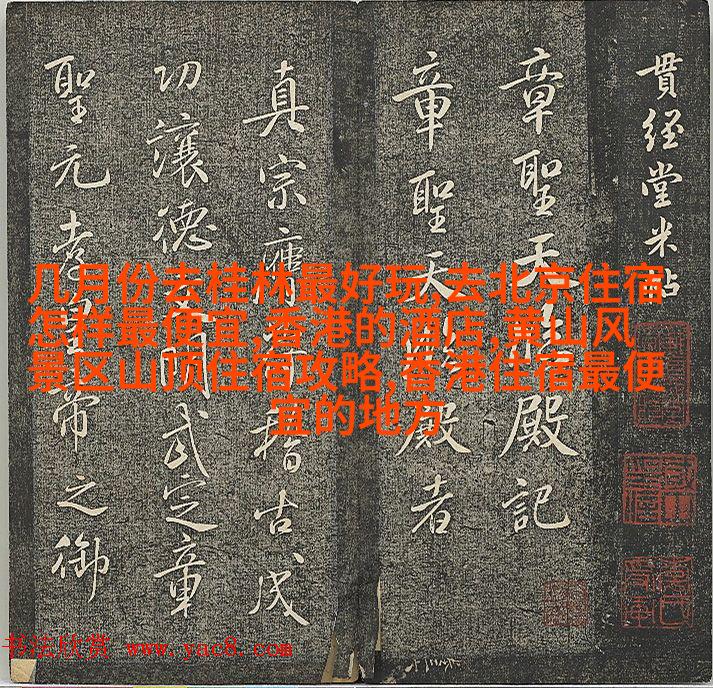 貫經堂米帖
章聖天殿記
章聖天殿者
真宗膺稽古成
功讓德明武定章
聖元孝皇帝之御
几月份去桂林最好玩,去北京住宿
怎样最便宜,香港的酒店,黄山风
景区山顶住宿攻略,香港住宿最便
宜的地方
书法欣赏 www.yac8.com